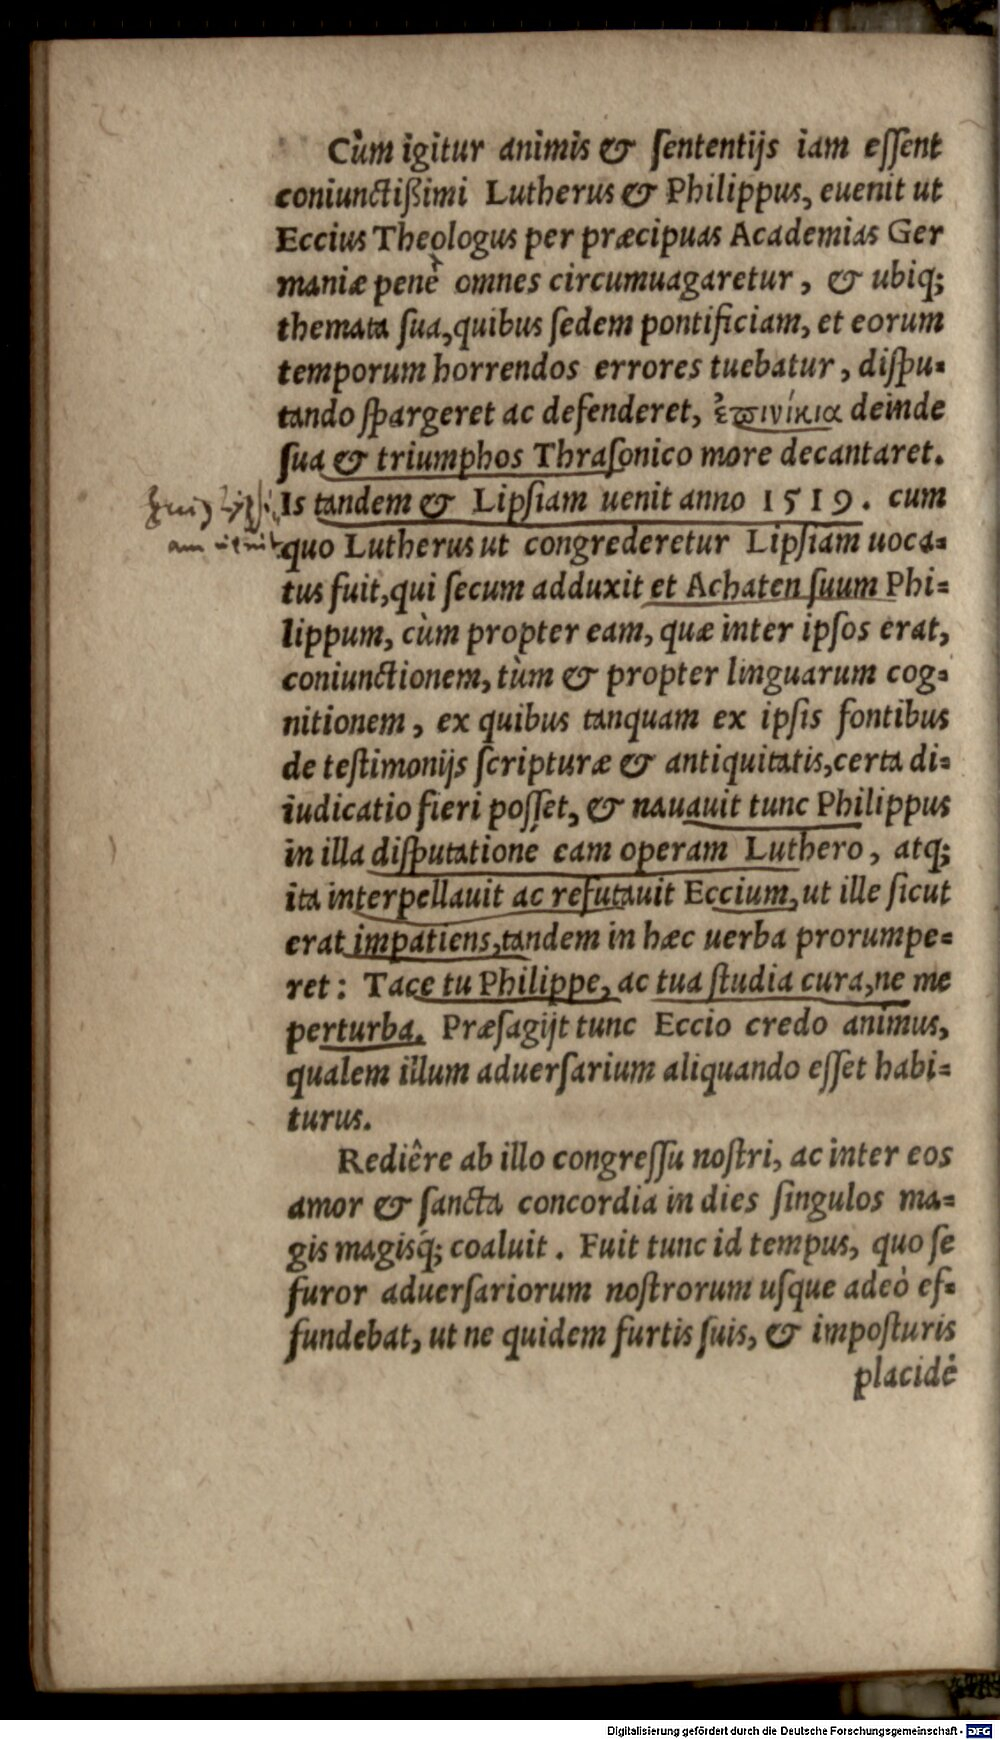 Cùm igitur animis & sententijs iam essent
coniunctißimi Lutherus & Philippus, euenit ut
Eccius Theologus per præcipuas Academias Ger
maniæ penè omnes circumuagaretur, & ubiq;
themata sua, quibus sedem pontificiam, et eorum
temporum horrendos errores tuebatur, dispu-
tando spargeret ac defenderet, ἐπινίκια deinde
sua & triumphos Thrasonico more decantaret.
Is tandem & Lipsiam uenit anno 1519. cum
quo Lutherus ut congrederetur Lipsiam uoca-
tus fuit, qui secum adduxit et Achaten suum Phi-
lippum, cùm propter eam, quæ inter ipsos erat,
coniunctionem, tùm & propter linguarum cog-
nitionem, ex quibus tanquam ex ipsis fontibus
de testimonijs scripturæ & antiquitatis, certa di-
iudicatio fieri posset, & nauauit tunc Philippus
in illa disputatione eam operam Luthero, atq;
ita interpellauit ac refutauit Eccium, ut ille sicut
erat impatiens, tandem in hæc uerba prorumpe-
ret: Tace tu Philippe, ac tua studia cura, ne me
perturba. Præsagijt tunc Eccio credo animus,
qualem illum aduersarium aliquando esset habi-
turus.
Rediêre ab illo congressu nostri, ac inter eos
amor & sancta concordia in dies singulos ma-
gis magisq́; coaluit. Fuit tunc id tempus, quo se
furor aduersariorum nostrorum usque adeò ef-
fundebat, ut ne quidem furtis suis, & imposturis
placidè
Digitalisierung gefördert durch die Deutsche Forschungsgemeinschaft - DFG